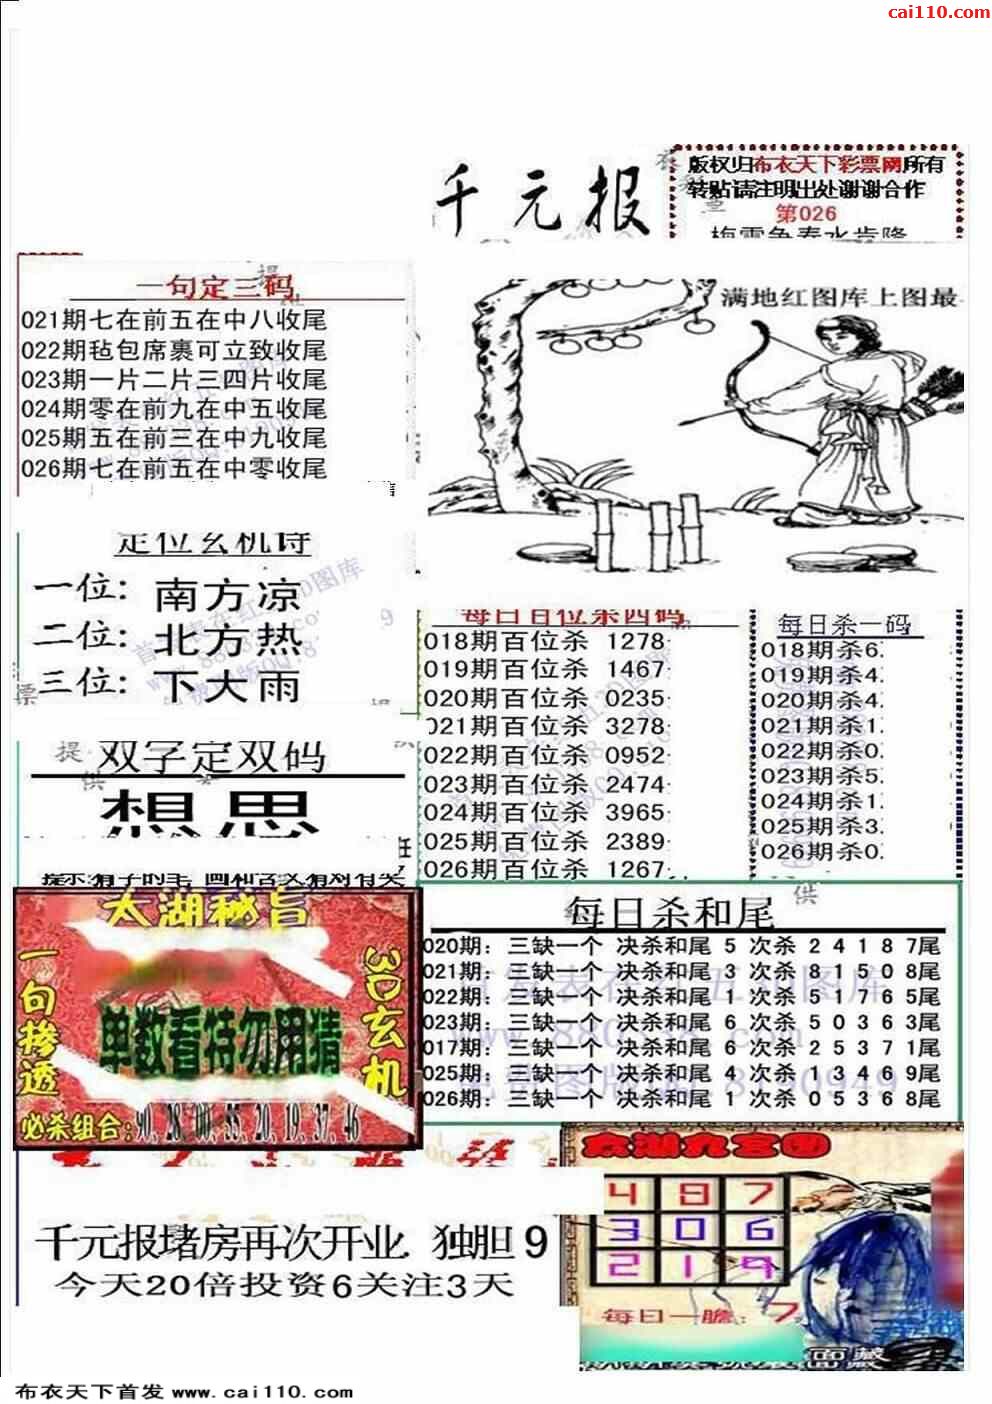 cai110.com
千元报
版权归布衣天下彩票网所有
转贴请注明出处谢谢合作
第026
梅雪争春水肯降
一句定三码
021期七在前五在中八收尾
022期毡包席裹可立致收尾
023期一片二片三四片收尾
024期零在前九在中五收尾
025期五在前三在中九收尾
026期七在前五在中零收尾
满地红图库上图最
定位玄机诗
一位：南方凉
二位：北方热
三位：下大雨
双字定双码
想思
每日百位杀四码
018期百位杀 1278
019期百位杀 1467
020期百位杀 0235
021期百位杀 3278
022期百位杀 0952
023期百位杀 2474
024期百位杀 3965
025期百位杀 2389
026期百位杀 1267
每日杀一码
018期杀6
019期杀4
020期杀4
021期杀1
022期杀0
023期杀5
024期杀1
025期杀3
026期杀0
太湖秘旨
一句掺透
3D玄机
单数看特勿用猜
必杀组合：90,28,00,55,20,19,37,46
每日杀和尾
020期：三缺一个 决杀和尾 5 次杀 2 4 1 8 7尾
021期：三缺一个 决杀和尾 3 次杀 8 1 5 0 8尾
022期：三缺一个 决杀和尾 1 次杀 5 1 7 6 5尾
023期：三缺一个 决杀和尾 6 次杀 5 0 3 6 3尾
017期：三缺一个 决杀和尾 6 次杀 2 5 3 7 1尾
025期：三缺一个 决杀和尾 4 次杀 1 3 4 6 9尾
026期：三缺一个 决杀和尾 1 次杀 0 5 3 6 8尾
千元报堵房再次开业 独胆 9
今天20倍投资6关注3天
太湖九宫图
4 9 7
3 0 6
2 1 9
每日一胆：7
布衣天下首发 www.cai110.com